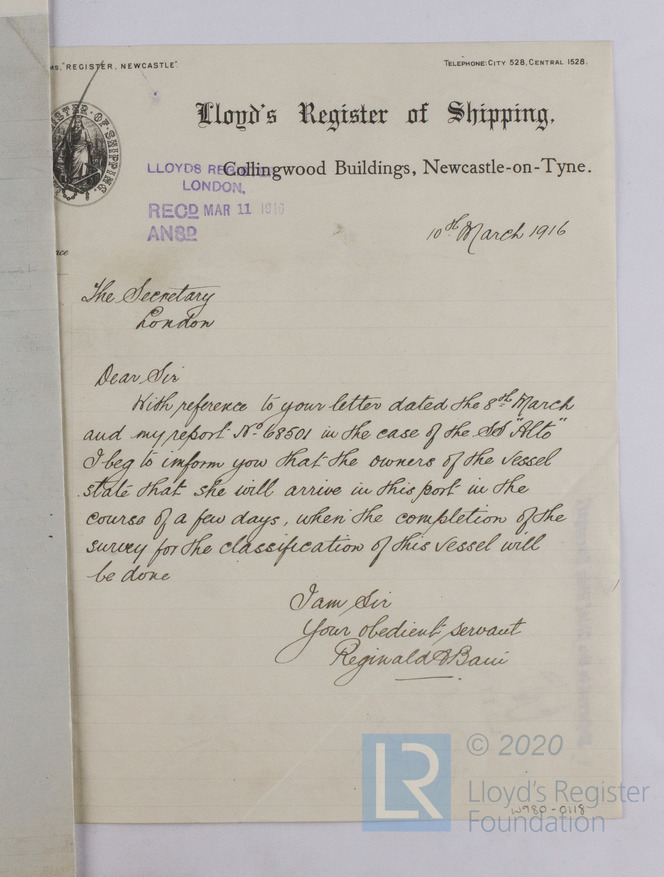 MS, "REGISTER, NEWCASTLE".
TELEPHONE: CITY 528, CENTRAL 1528.
Lloyd's Register of Shipping,
Collingwood Buildings, Newcastle-on-Tyne.
LLOYDS REG
LONDON.
RECD MAR 11 1916
ANSD
10th March 1916
The Secretary
London
Dear Sir
With reference to your letter dated the 8th March
and my report No 68501 in the case of the SS "Alto"
I beg to inform you that the owners of the vessel
state that she will arrive in this port in the
course of a few days, when the completion of the
survey for the classification of this vessel will
be done
I am Sir
Your obedient servant
Reginald
LR
© 2020
Lloyd's Register
Foundation
W980-0118